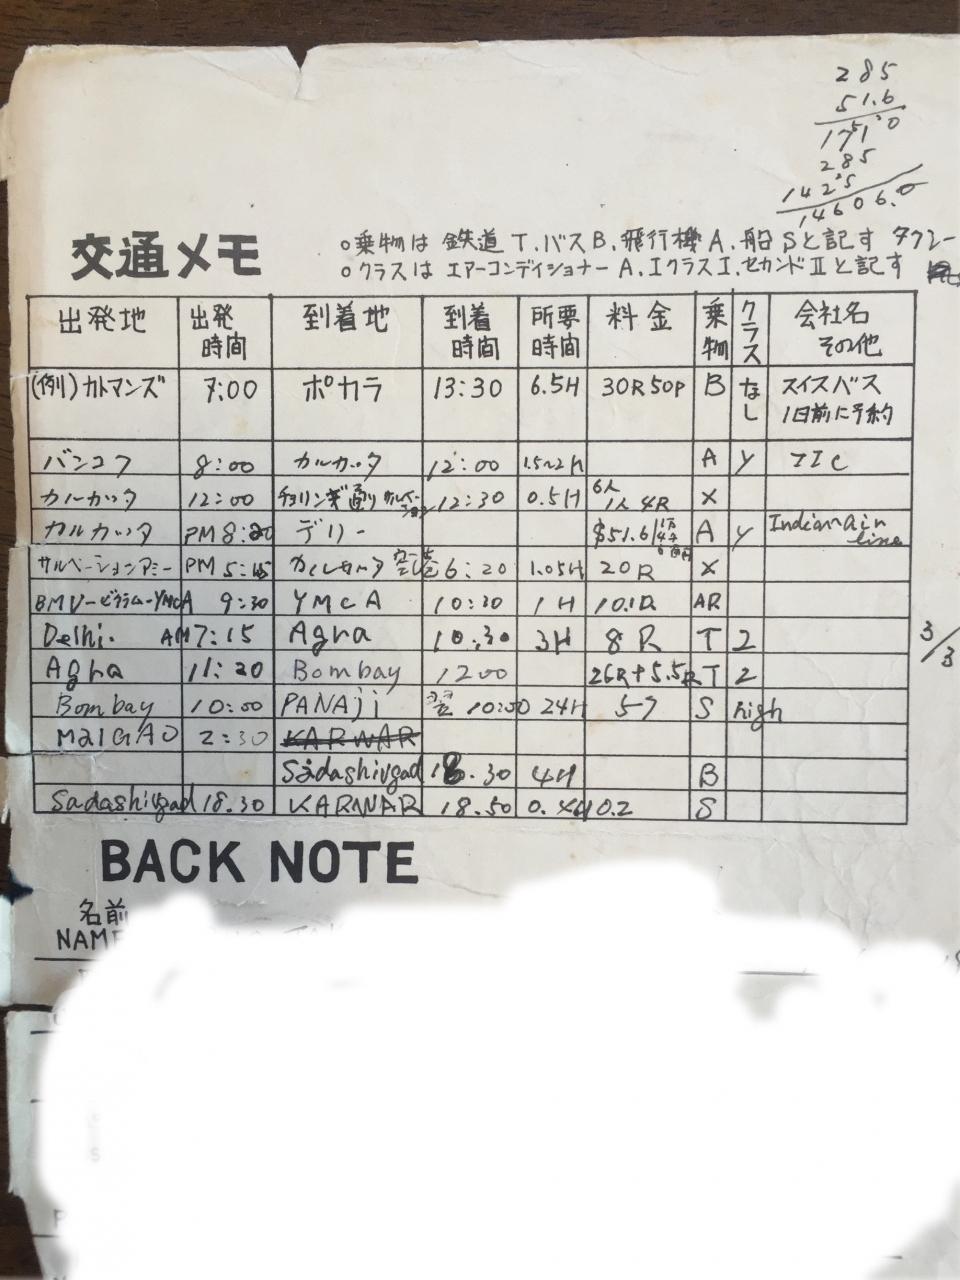 285
51.6
1710
285
1425
14606.0
交通メモ
○乗物は 鉄道T、バスB、飛行機A、船Sと記す タクシー
○クラスは エアーコンディショナーA、IクラスI、セカンドIIと記す
出発地 出発時間 到着地 到着時間 所要時間 料金 乗物 クラス 会社名その他
(例)カトマンズ 7:00 ポカラ 13:30 6.5H 30R50P B なし スイスバス 1日前に予約
バンコク 8:00 カルカッタ 12:00 1.5~2H A y
カルカッタ 12:00 チョリンギ通り 12:30 0.5H 6人 1人 4R X
カルカッタ PM 8:20 デリー $51.6 A y Indian air line
サルベーションアーミー PM 5:15 カルカッタ空港 6:20 1.05H 20R X
YMCA 9:30 YMCA 10:30 1H 10.1R AR
Delhi. AM7:15 Agra 10.30 3H 8R T 2
Agra 11:20 Bombay 12.00 26R+5.5R T 2
Bombay 10:00 PANAji 翌 10:00 24H 57 S high
MalGAO 2:30 KARWAR
Sadashivgad 18.30 4H B
Sadashivgad 18.30 KARWAR 18.50 0.2 S
3/3
BACK NOTE
名前
NAME